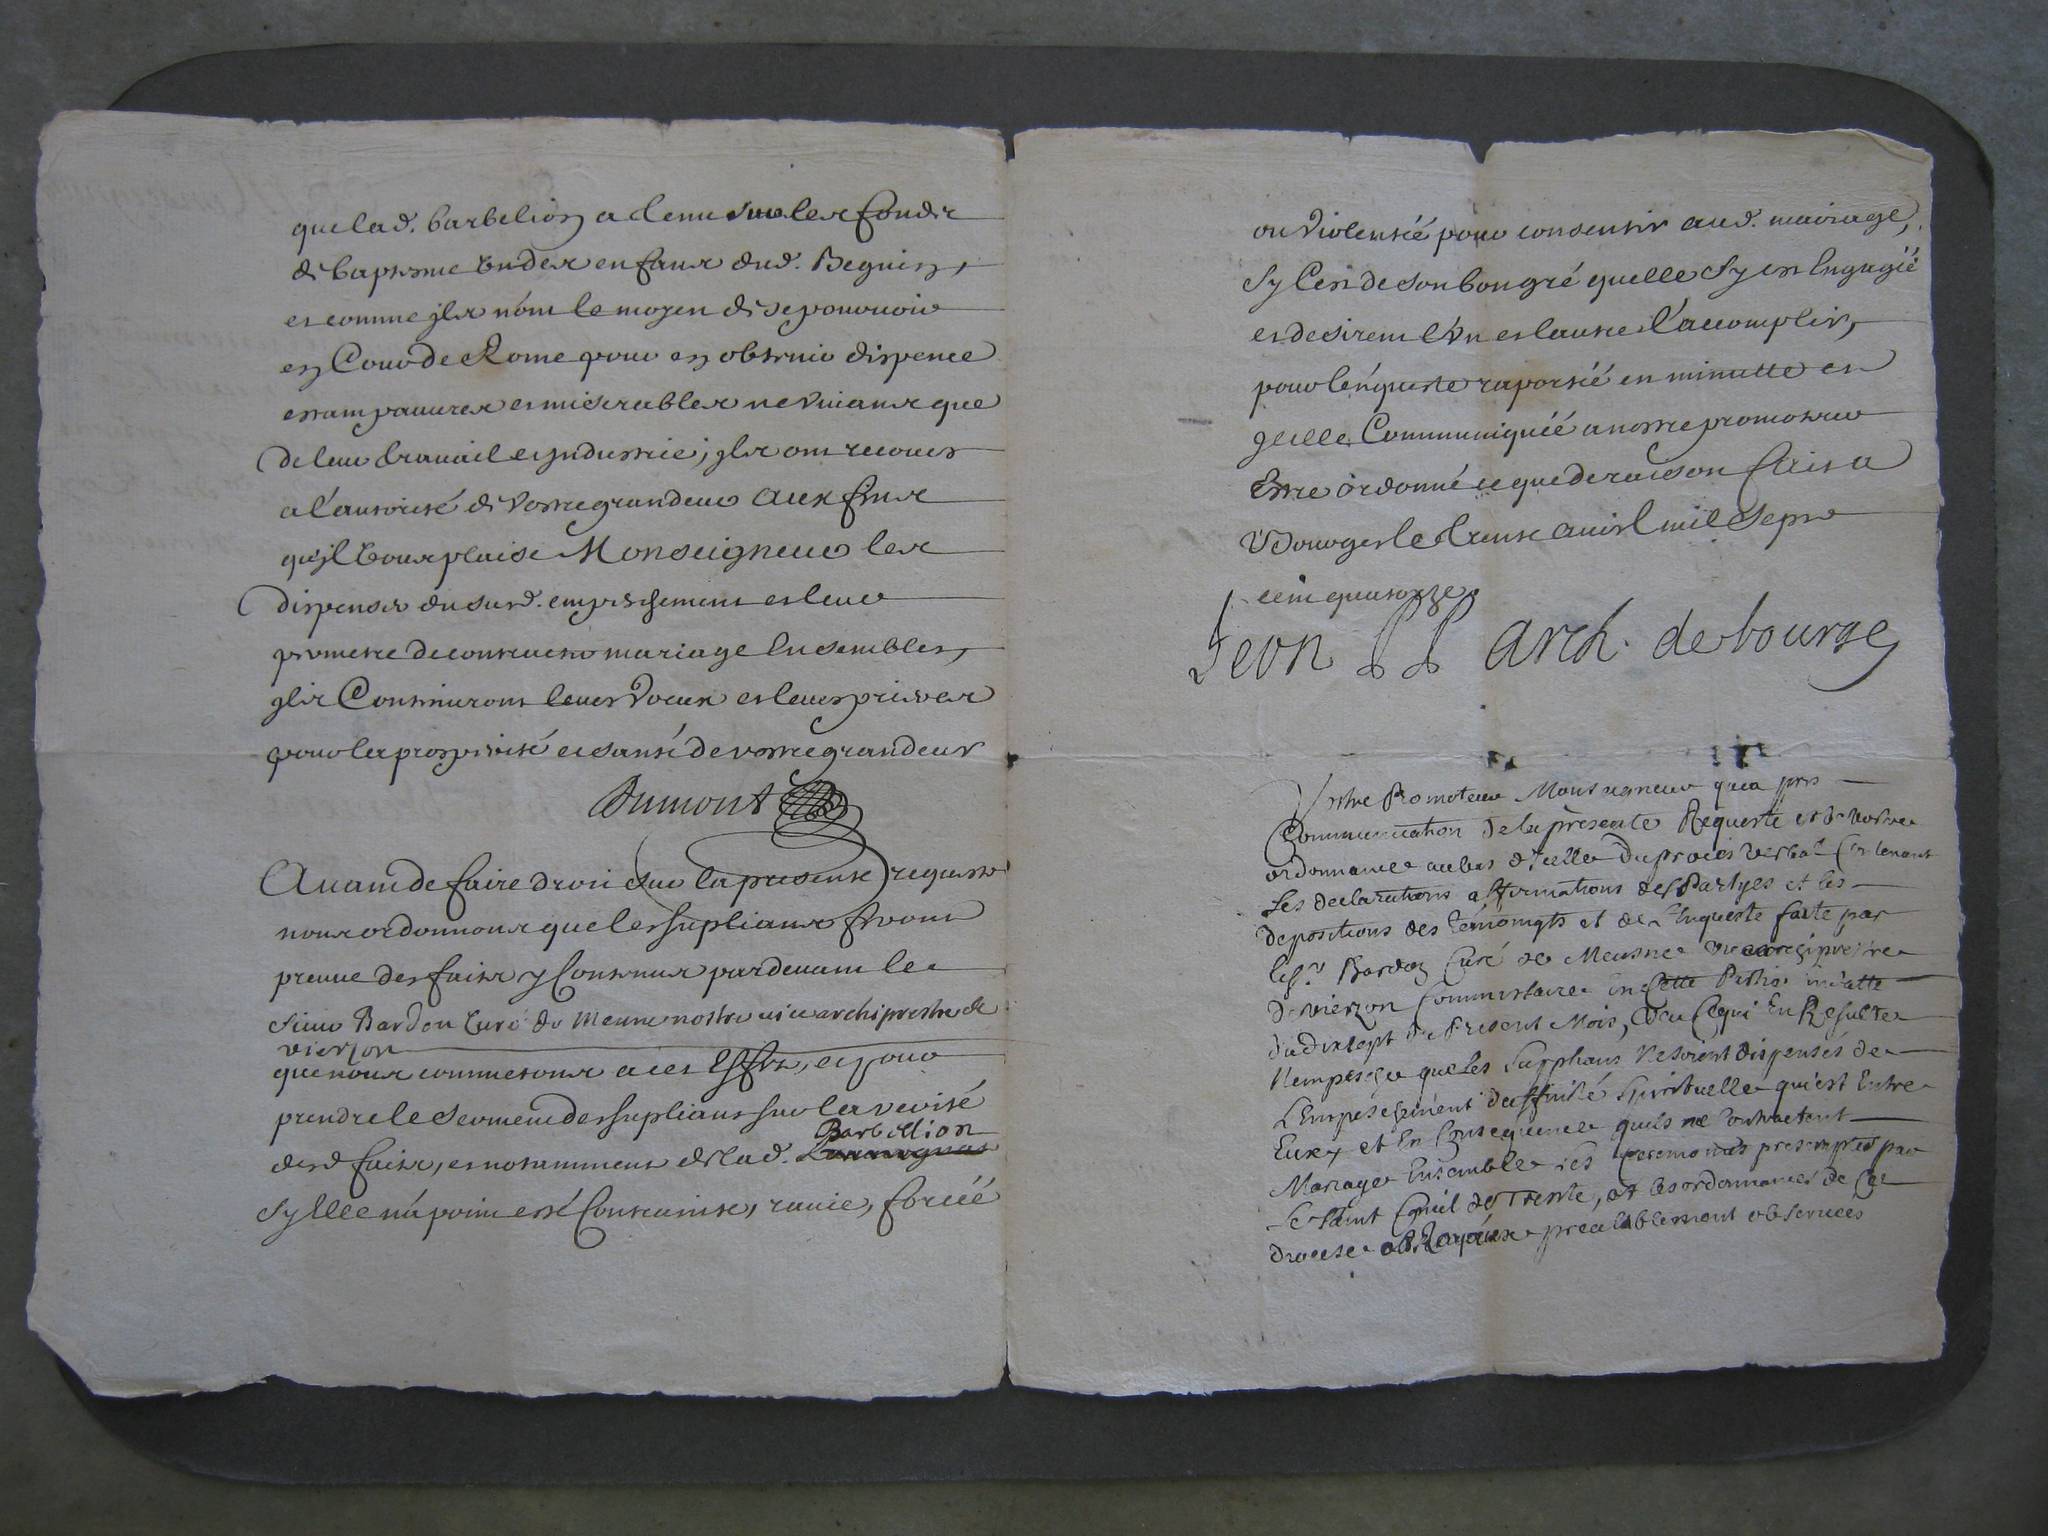 que lad. barbelion a tenu sur les fonds
de baptesme un des enfans dud. Beguin,
et comme ils n'ont le moyen de se pouruoir
en Cour de Rome pour en obtenir dispence
estans pauures et miserables ne viuans que
de leur trauail et industrie, ils ont recours
a l'autorité de Vostre grandeur aux fins
qu'il vous plaise Monseigneur les
dispenser du susd. empeschement et leur
permetre de contracter mariage Ensembles,
ils Continuront leurs voeux et leurs prieres
pour la prosperité et santé de vostre grandeur
Dumont
Auant de faire droit sur la presente requeste
nous ordonnons que les suplians feront
preuue des faits y Contenus pardeuant le
sieur Bardon Curé de Meune nostre vicearchiprestre de
vierzon
que nous commetons a cet effet, et pour
prendre le serment des suplians sur la verité
desd faits, et notamment de lad. Barbellion
sy Elle n'a point esté Contrainte, rauie, forcéé
ou violentéé pour consentir aud. mariage,
sy C'est de son bon gré quelle sy est Engagéé
et desirent l'Vn et l'autre l'acomplir,
pour l'enqueste raportéé en minutte et
jcelle Communiquéé a nostre promoteur
Estre ordonné ce que de raison fait a
Bourges le trente auril mil sept
cent quatorze.
Leon P P arch. de bourges
Vostre Promoteur Monseigneur qui a pris
Communication de la presente Requeste et de vostre
ordonnance au bas d'icelle du proces verbal Contenant
Les declarations affirmations des Partyes et les
depositions des temoings et de l'Enqueste faite par
le sr. Bardon Curé de Meusne vicearchiprestre
de vierzon Commissaire En Cette Partie en datte
du dixsept du Present Mois, Veu Ce qui En Resulte
N'empesche que les Supplians Ne soient dispensés de
L'Empeschement d'affinité spirituelle qui est Entre
Eux, et En Consequence quils ne Contractent
Mariage Ensemble les ceremonies prescriptes par
Le Saint Concil de Trente, et les ordonnances de Ce
diocese prealablement obseruées